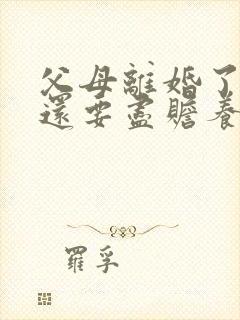 父母離婚了
還要盡贍養
羅孚